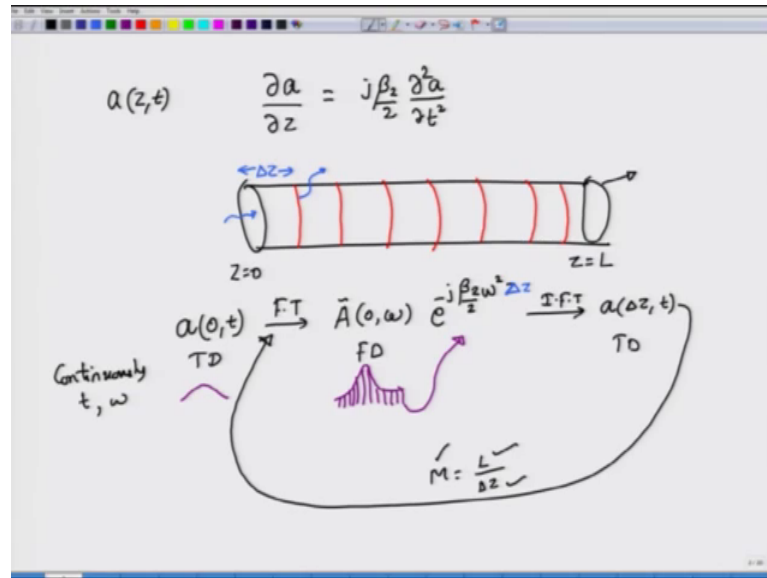 a(z,t) ∂a/∂z = jβ₂/2 ∂²a/∂t²
←Δz→
z=0 z=L
a(0,t) F.T → Ã(0,ω) e^{-jβ₂/2 ω² Δz} I.F.T → a(Δz,t)
TD FD TD
Continuously
t, ω
M = L/Δz